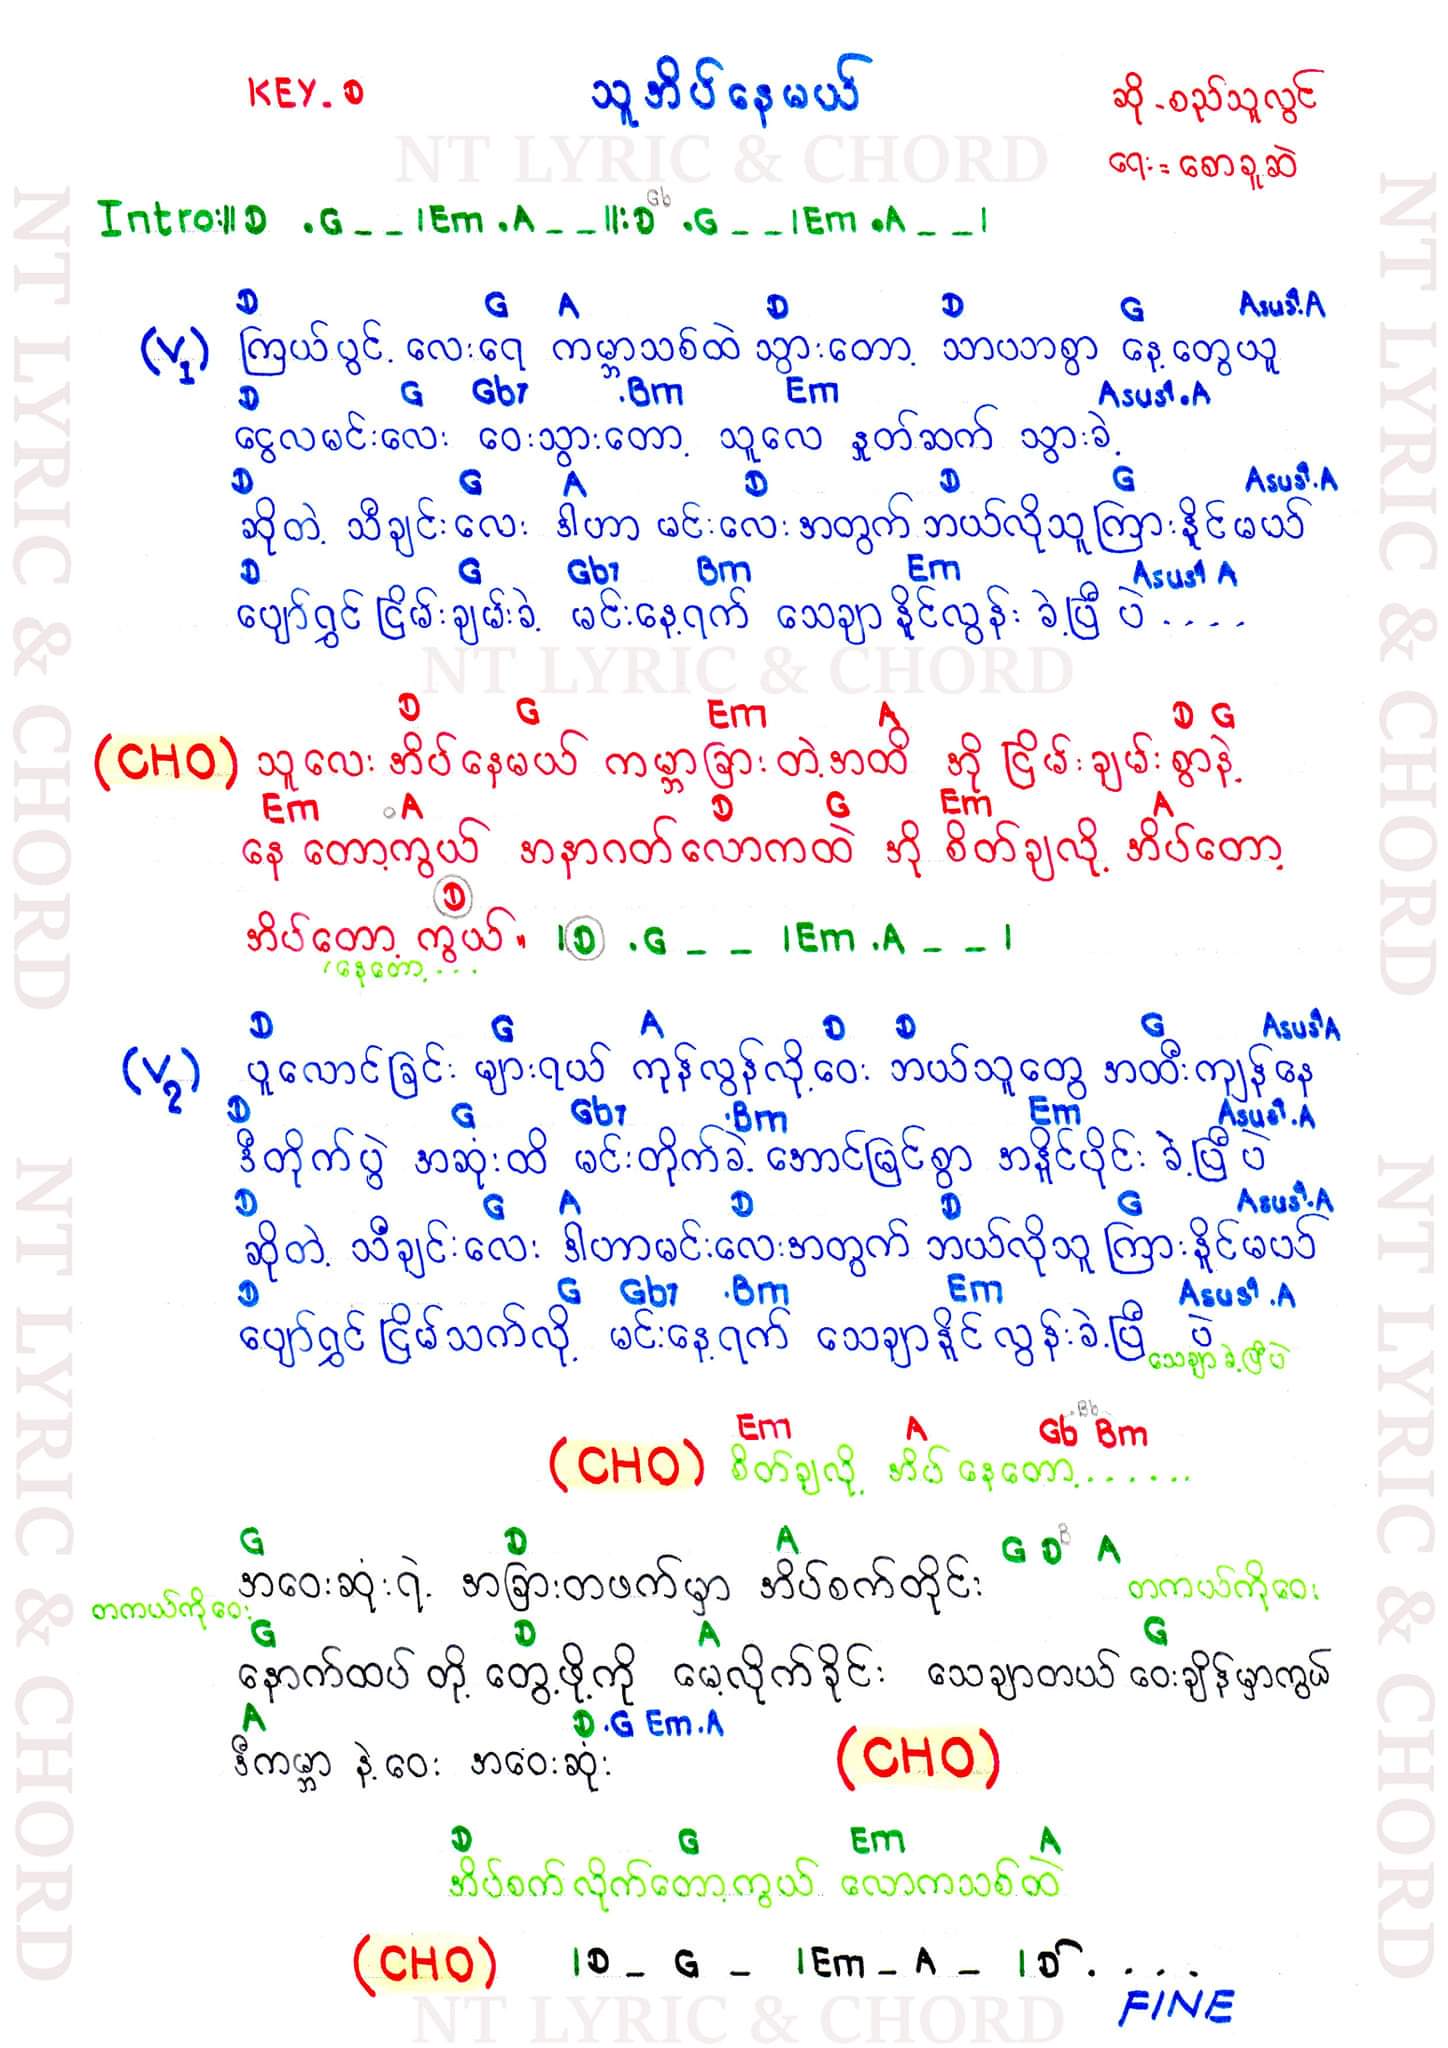 KEY. D
သူအိပ်နေမယ်
ဆို - စည်သူလွင်
ရေး = စောခူဆဲ
NT LYRIC & CHORD
Intro:|| D .G _ _ | Em .A _ _ ||: D Gb .G _ _ | Em .A _ _ |
D G A D D G Asus4.A
(V1) ကြယ်ပွင့်လေးရေ ကမ္ဘာသစ်ထဲ သွားတော့ သာယာစွာ နေ့တွေယူ
D G Gb7 .Bm Em Asus4.A
ငွေလမင်းလေး ဝေးသွားတော့ သူလေ နှုတ်ဆက် သွားခဲ့
D G A D D G Asus4.A
ဆိုတဲ့ သီချင်းလေး ဒါဟာ မင်းလေးအတွက် ဘယ်လိုသူကြားနိုင်မယ်
D G Gb7 Bm Em Asus4 A
ပျော်ရွှင်ငြိမ်းချမ်းခဲ့ မင်းနေ့ရက် သေချာနိုင်လွန်းခဲ့ပြီ ပဲ ....
NT LYRIC & CHORD
D G Em A D G
(CHO) သူလေးအိပ်နေမယ် ကမ္ဘာခြားတဲ့အထိ အို ငြိမ်းချမ်းစွာနဲ့
Em .A D G Em A
နေတော့ကွယ် အနာဂတ်လောကထဲ အို စိတ်ချလို့ အိပ်တော့
D
အိပ်တော့ ကွယ်။ | D .G _ _ | Em .A _ _ |
/နေတော့...
D G A D D G Asus4A
(V2) ပူလောင်ခြင်း များရယ် ကုန်လွန်လို့ဝေး ဘယ်သူတွေ အထီးကျန်နေ
D G Gb7 .Bm Em Asus4.A
ဒီတိုက်ပွဲ အဆုံးထိ မင်းတိုက်ခဲ့ အောင်မြင်စွာ အနိုင်ပိုင်းခဲ့ပြီပဲ
D G A D D G Asus4.A
ဆိုတဲ့ သီချင်းလေး ဒါဟာမင်းလေးအတွက် ဘယ်လိုသူ ကြားနိုင်မယ်
D G Gb7 .Bm Em Asus4.A
ပျော်ရွှင်ငြိမ်သက်လို့ မင်းနေ့ရက် သေချာနိုင်လွန်းခဲ့ပြီ ပဲ
သေချာခဲ့ပြီပဲ
Em A Gb .Bb Bm
(CHO) စိတ်ချလို့ အိပ်နေတော့.......
G D A G D B A
အဝေးဆုံးရဲ့ အခြားတဖက်မှာ အိပ်စက်တိုင်း တကယ်ကိုဝေး
တကယ်ကိုဝေး
G D A G
နောက်ထပ်တို့ တွေ့ဖို့ကို မေ့လိုက်ခိုင်း သေချာတယ် ဝေးချိန်မှာကွယ်
A D .G Em.A
ဒီကမ္ဘာ နဲ့ဝေး အဝေးဆုံး (CHO)
D G Em A
အိပ်စက်လိုက်တော့ကွယ် လောကသစ်ထဲ
(CHO) | D _ G _ | Em _ A _ | D ....
FINE
NT LYRIC & CHORD
NT LYRIC & CHORD
NT LYRIC & CHORD
NT LYRIC & CHORD
NT LYRIC & CHORD